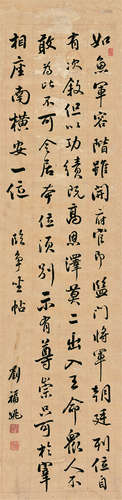 如魚軍容階雖開府官即監門將軍朝廷列位自
有次敘但以功績既高恩澤莫二出入王命眾人不
敢為比不可令居本位須別示有尊崇只可於宰
相座南橫安一位 臨爭坐帖
劉福姚